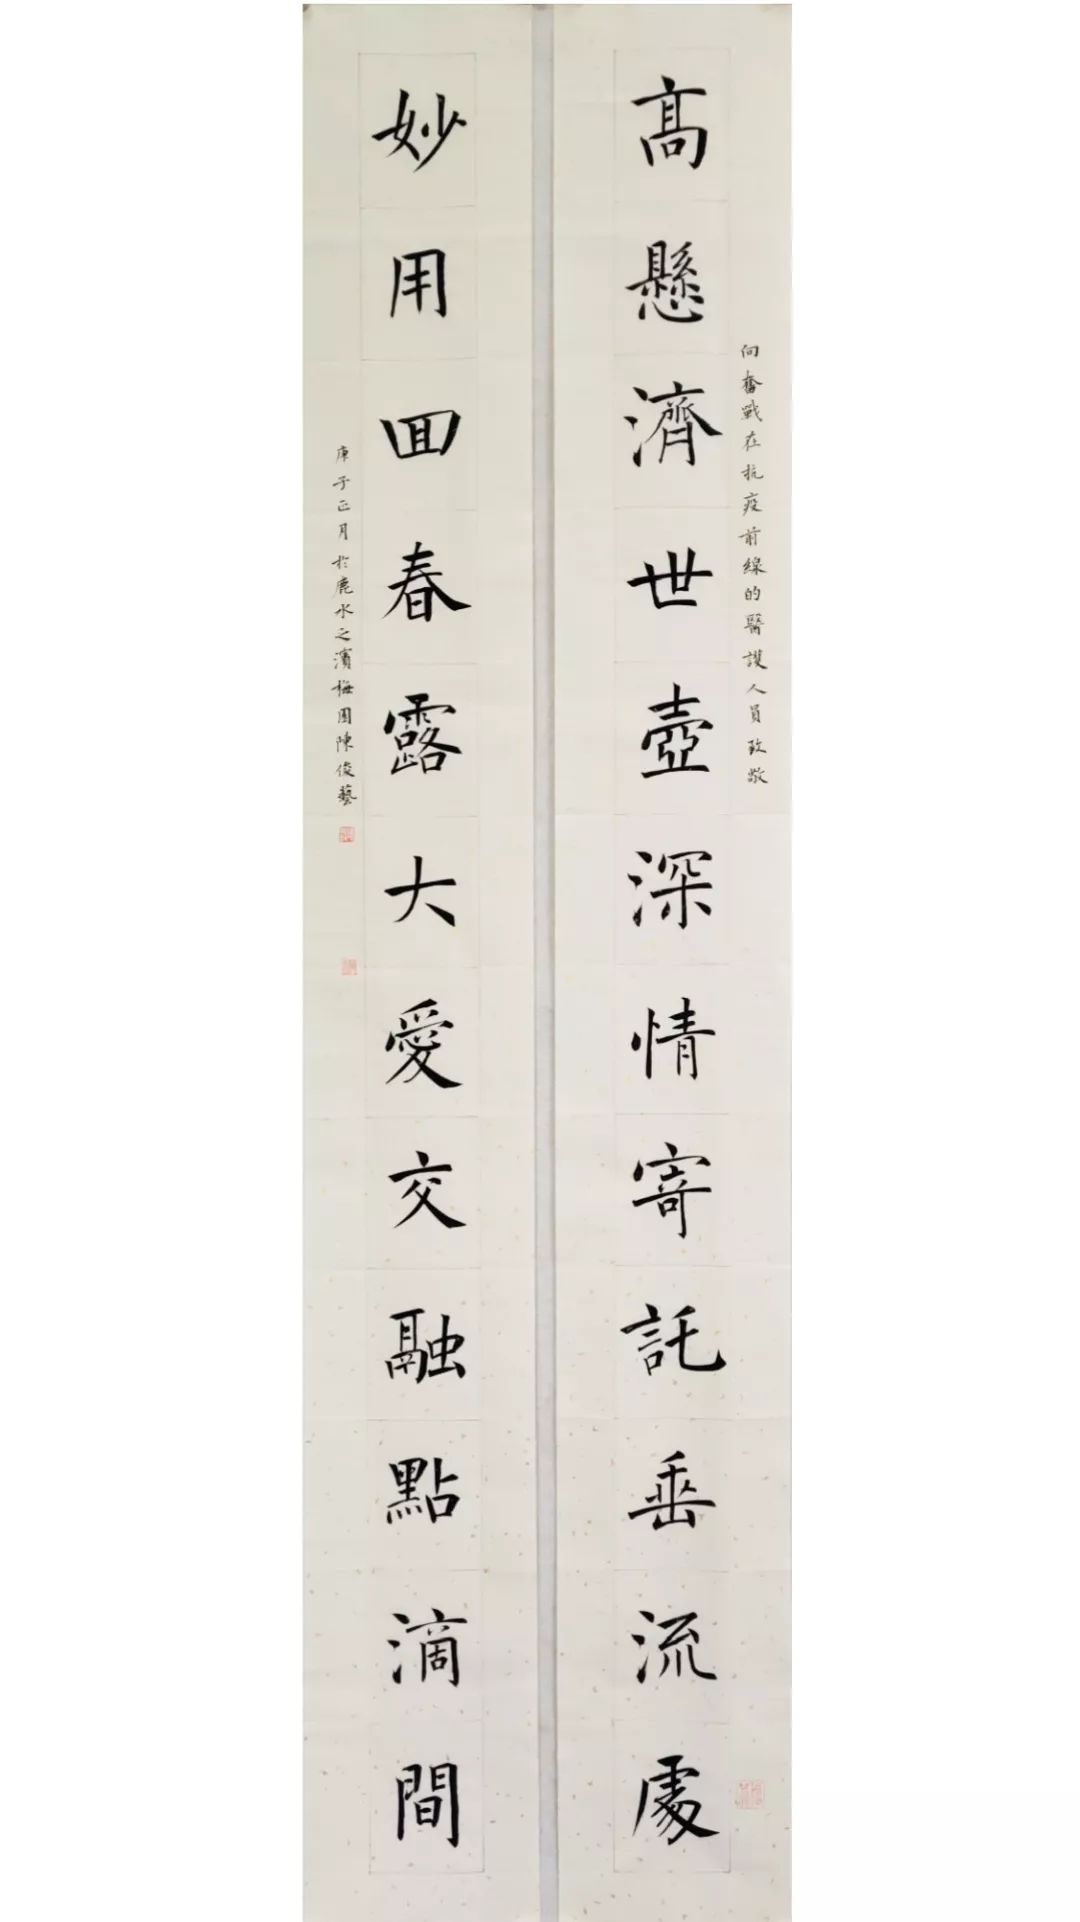 向奮戰在抗疫前線的醫護人員致敬
高懸濟世壺深情寄託垂流處
妙用回春露大愛交融點滴間
庚子正月於鹿水之濱梅園陳俊藝